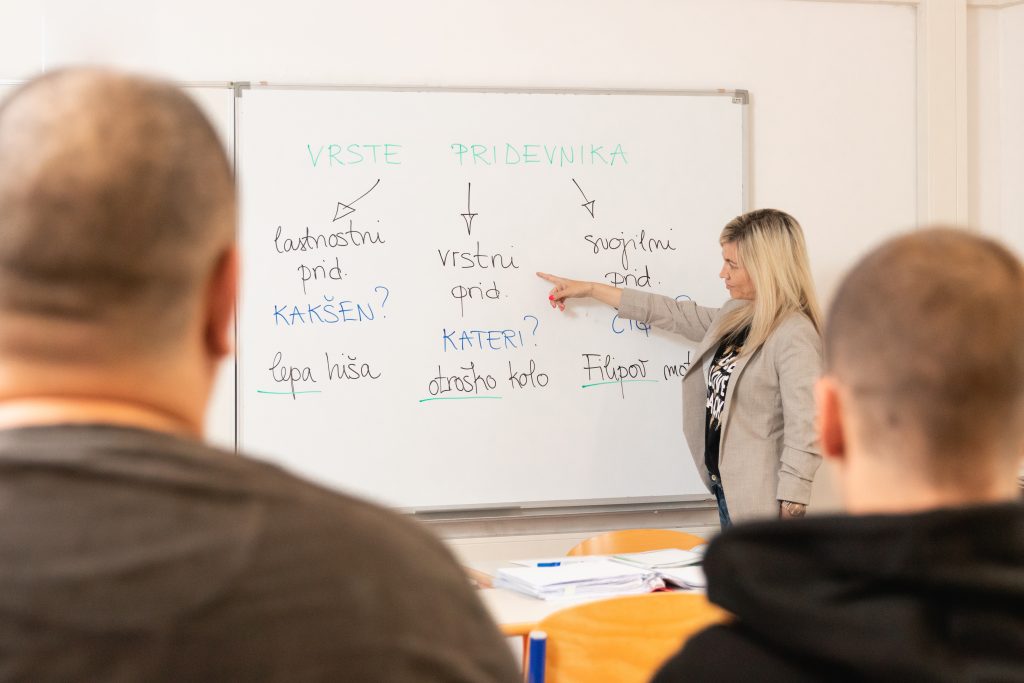 VRSTE PRIDEVNIKA
lastnostni prid.
KAKŠEN?
lepa hiša
vrstni prid.
KATERI?
otroško kolo
svojilni prid.
Filipov